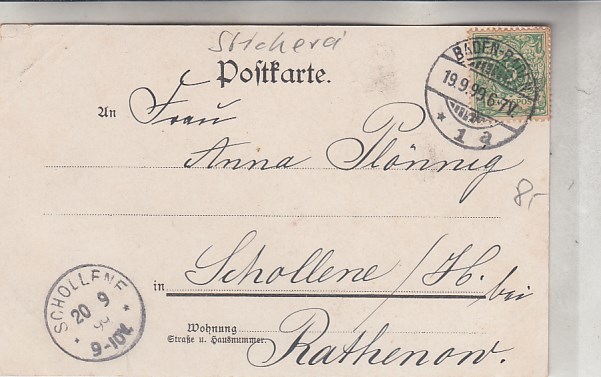 Stickerei
Postkarte.
BADEN-BADEN
19.9.99 6-7N
* 1 a
An Frau
Anna Plönnig
8,-
in Schollene / H. bei
SCHOLLENE
20 9
99
* 9-10V. *
Wohnung
Straße u. Hausnummer.
Rathenow.